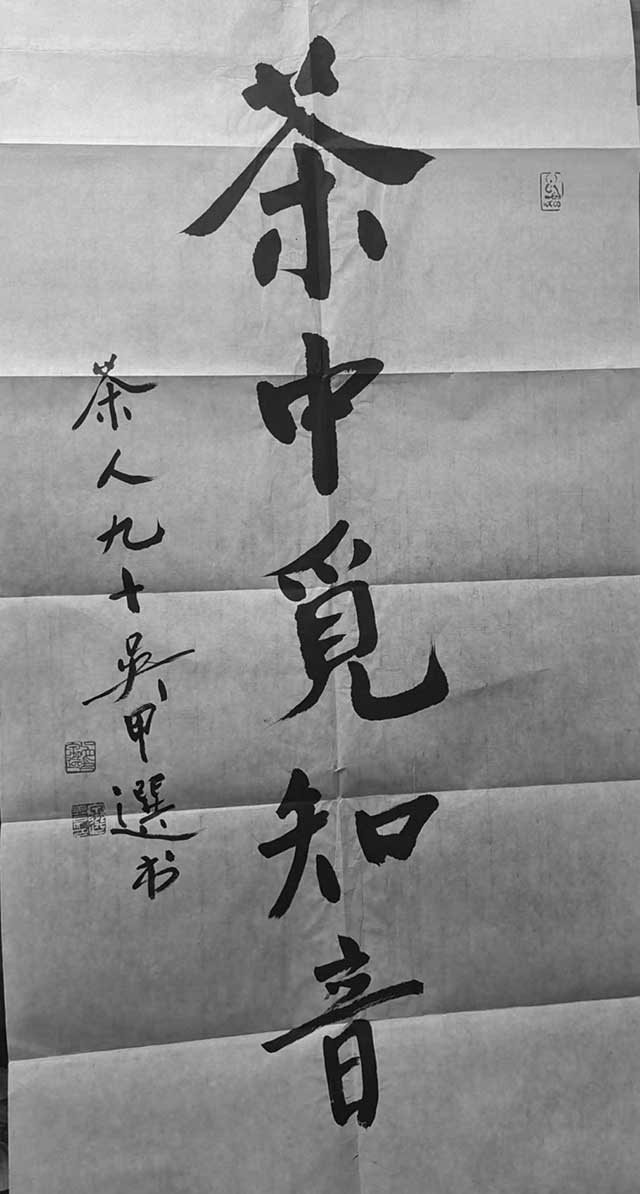 茶中覓知音
茶人九十吳甲選书